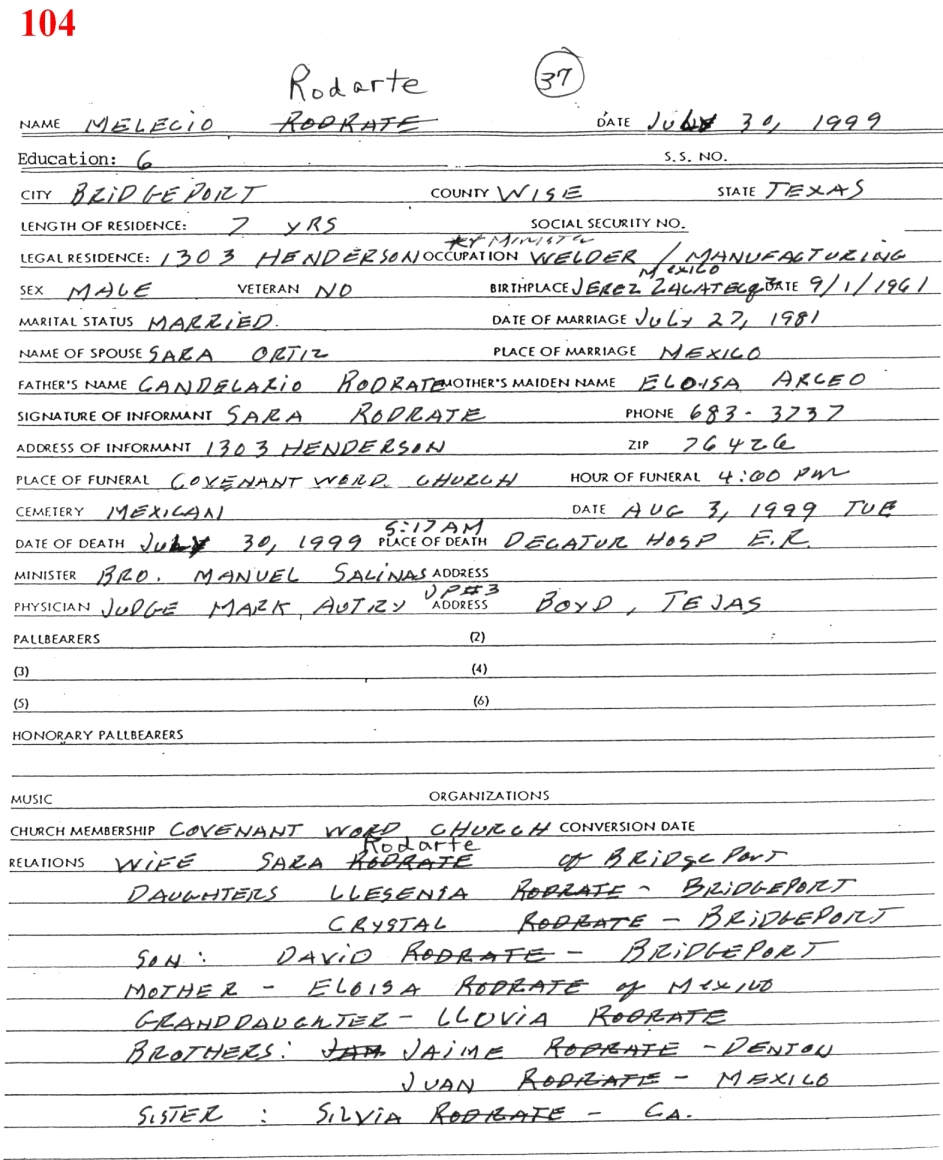 104
Rodarte 37
NAME MELECIO RODRATE DATE JULY 30, 1999
Education: 6 S.S. NO.
CITY BRIDGEPORT COUNTY WISE STATE TEXAS
LENGTH OF RESIDENCE: 7 YRS SOCIAL SECURITY NO.
LEGAL RESIDENCE: 1303 HENDERSON OCCUPATION WELDER / MANUFACTURING
Mexico
SEX MALE VETERAN NO BIRTHPLACE JEREZ ZACATECAS DATE 9/1/1961
MARITAL STATUS MARRIED. DATE OF MARRIAGE JULY 27, 1981
NAME OF SPOUSE SARA ORTIZ PLACE OF MARRIAGE MEXICO
FATHER'S NAME CANDELARIO RODRATE MOTHER'S MAIDEN NAME ELOISA ARCEO
SIGNATURE OF INFORMANT SARA RODRATE PHONE 683-3737
ADDRESS OF INFORMANT 1303 HENDERSON ZIP 76426
PLACE OF FUNERAL COVENANT WORD CHURCH HOUR OF FUNERAL 4:00 PM
CEMETERY MEXICAN DATE AUG 3, 1999 TUE
5:17 AM
DATE OF DEATH JULY 30, 1999 PLACE OF DEATH DECATUR HOSP E.R.
MINISTER BRO. MANUEL SALINAS ADDRESS
JP#3
PHYSICIAN JUDGE MARK AUTRY ADDRESS BOYD, TEJAS
PALLBEARERS (2)
(3) (4)
(5) (6)
HONORARY PALLBEARERS
MUSIC ORGANIZATIONS
CHURCH MEMBERSHIP COVENANT WORD CHURCH CONVERSION DATE
Rodarte
RELATIONS WIFE SARA RODRATE of BRIDGEPORT
DAUGHTERS LLESENIA RODRATE - BRIDGEPORT
CRYSTAL RODRATE - BRIDGEPORT
SON: DAVID RODRATE - BRIDGEPORT
MOTHER - ELOISA RODRATE of MEXICO
GRANDDAUGHTER - LLUVIA RODRATE
BROTHERS: JAM JAIME RODRATE - DENTON
JUAN RODRATE - MEXICO
SISTER : SILVIA RODRATE - CA.